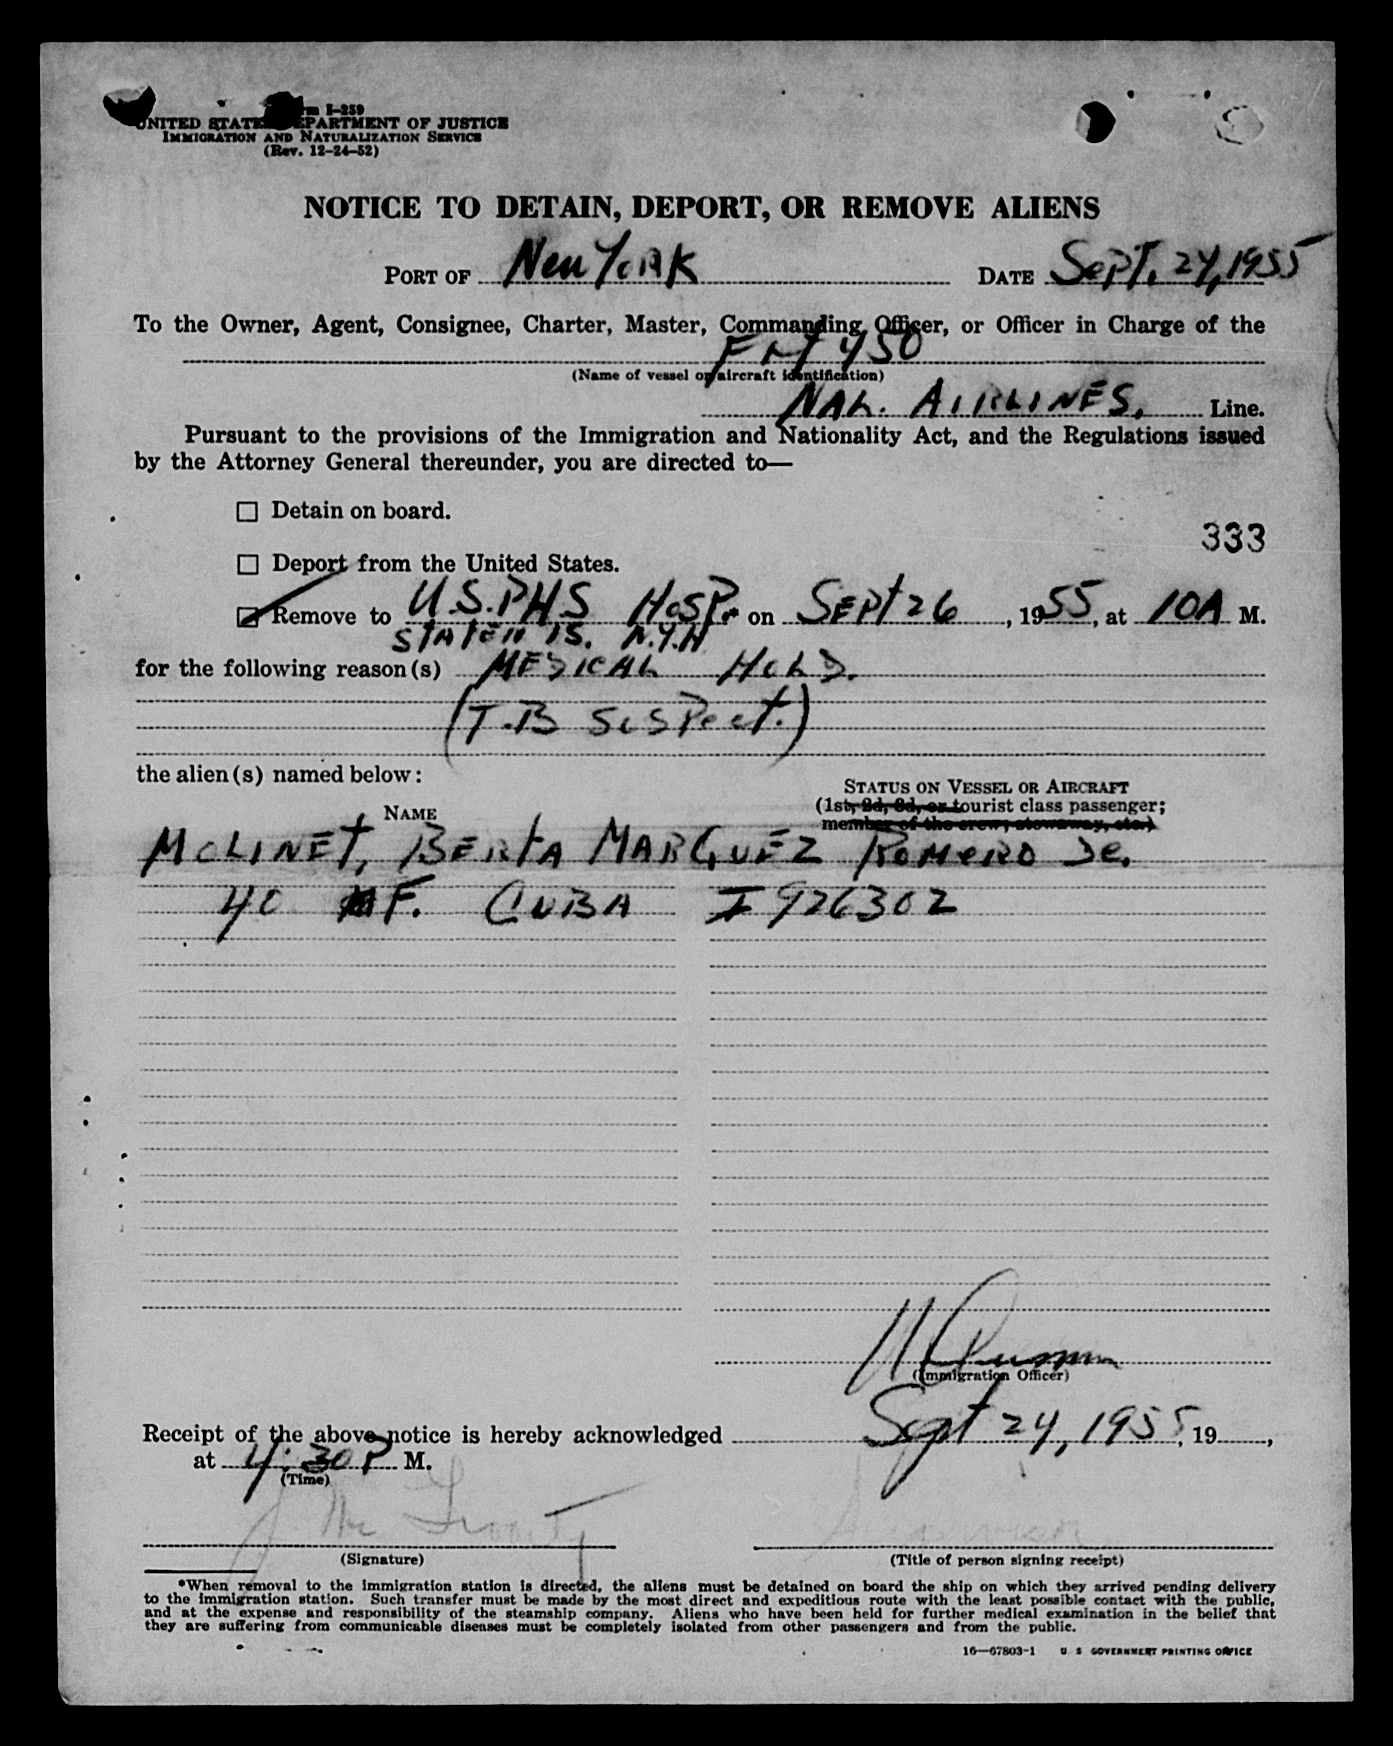 Form I-259
UNITED STATES DEPARTMENT OF JUSTICE
IMMIGRATION AND NATURALIZATION SERVICE
(Rev. 12-24-52)
NOTICE TO DETAIN, DEPORT, OR REMOVE ALIENS
PORT OF New York DATE Sept. 24, 1955
To the Owner, Agent, Consignee, Charter, Master, Commanding Officer, or Officer in Charge of the
450
(Name of vessel or aircraft identification)
NAL. AIRLINES. Line.
Pursuant to the provisions of the Immigration and Nationality Act, and the Regulations issued
by the Attorney General thereunder, you are directed to—
☐ Detain on board.
333
☐ Deport from the United States.
☑ Remove to U.S.PHS HOSP. on SEPT 26, 1955, at 10A M.
STATEN IS. N.Y.H
for the following reason(s) MEDICAL HOLD.
(T.B SUSPect.)
the alien(s) named below:
STATUS ON VESSEL OR AIRCRAFT
NAME (1st, 2d, 3d, or tourist class passenger;
member of the crew, stowaway, etc.)
MOLINET, BERTA MARQUEZ ROMERO De.
40 F. CUBA I 926302
(Immigration Officer)
Receipt of the above notice is hereby acknowledged Sept 24, 1955, 19 ,
at 4:30 P M.
(Time)
(Signature) (Title of person signing receipt)
*When removal to the immigration station is directed, the aliens must be detained on board the ship on which they arrived pending delivery
to the immigration station. Such transfer must be made by the most direct and expeditious route with the least possible contact with the public,
and at the expense and responsibility of the steamship company. Aliens who have been held for further medical examination in the belief that
they are suffering from communicable diseases must be completely isolated from other passengers and from the public.
16—67803-1 U S GOVERNMENT PRINTING OFFICE